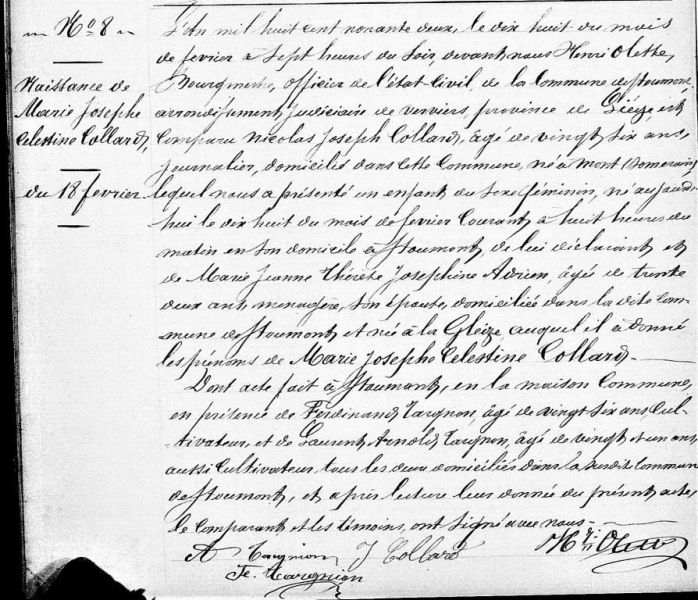 N° 8
Naissance de
Marie Josephe
Celestine Collard,
du 18 fevrier
L'An mil huit cent nonante deux, le dix huit du mois
de fevrier à Sept heures du Soir, devant nous Henri
Bourgmestre, officier de l'état Civil, de la Commune de Stoumont,
arrondissement judiciaire de verviers, province de Liége, est
Comparu Nicolas Joseph Collard, agé de vingt Six ans,
journalier, domicilié dans Cette Commune, né à Mont
lequel nous a présenté un enfant du Sexe féminin, né aujourd
hui le dix huit du mois de fevrier Courant à huit heures du
matin en Son domicile à Stoumont, de lui déclarant et
de Marie Jeanne Thérèse Josephine Adrien, agée de trente
deux ans, menagère, Son épouse, domiciliée dans la dite Com-
mune de Stoumont et née à la Gleize, auquel il a donné
les prénoms de Marie Josephe Celestine Collard.
Dont acte fait à Stoumont, en la maison Commune,
en présence de Ferdinand Targnon, âgé de vingt Six ans, Cul-
-tivateur, et de Laurent Arnold Targnon, âgé de vingt et un ans,
aussi Cultivateur, tous les deux domiciliés dans la Susdite Commune
de Stoumont, et après lecture leur donnée du présent acte,
le Comparant et les témoins, ont Signé avec nous.
A Targnion J Collard
Fe. Targnion